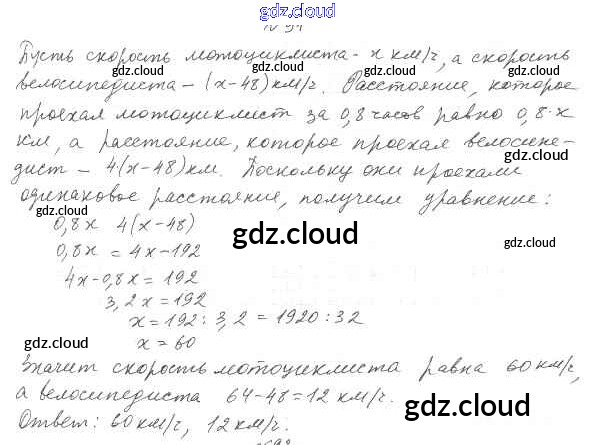 gdz.cloud
Пусть скорость мотоциклиста - x км/ч, а скорость
gdz.cloud gdz.cloud
велосипедиста - (x-48) км/ч. Расстояние, которое
проехал мотоциклист за 0,8 часов равно 0,8·x
км, а расстояние, которое проехал велосипе-
gdz.cloud gdz.cloud
дист - 4(x-48) км. Поскольку они проехали
одинаковое расстояние, получим уравнение:
0,8x 4(x-48)
gdz.cloud
0,8x = 4x-192
gdz.cloud
4x-0,8x = 192
3,2x = 192
x = 192 : 3,2 = 1920 : 32
gdz.cloud x = 60 gdz.cloud
Значит скорость мотоциклиста равна 60 км/ч,
а велосипедиста 64-48=12 км/ч.
gdz.cloud
Ответ: 60 км/ч, 12 км/ч.
gdz.cloud